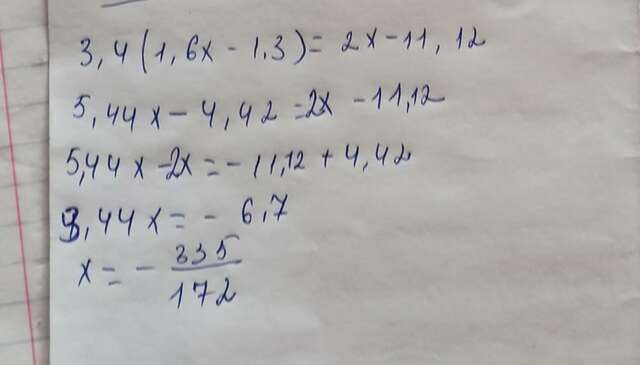 3,4(1,6x - 1.3) = 2x - 11,12
5,44x - 4,42 = 2x - 11,12
5,44x - 2x = - 11,12 + 4,42
3,44x = - 6,7
x = - 335/172